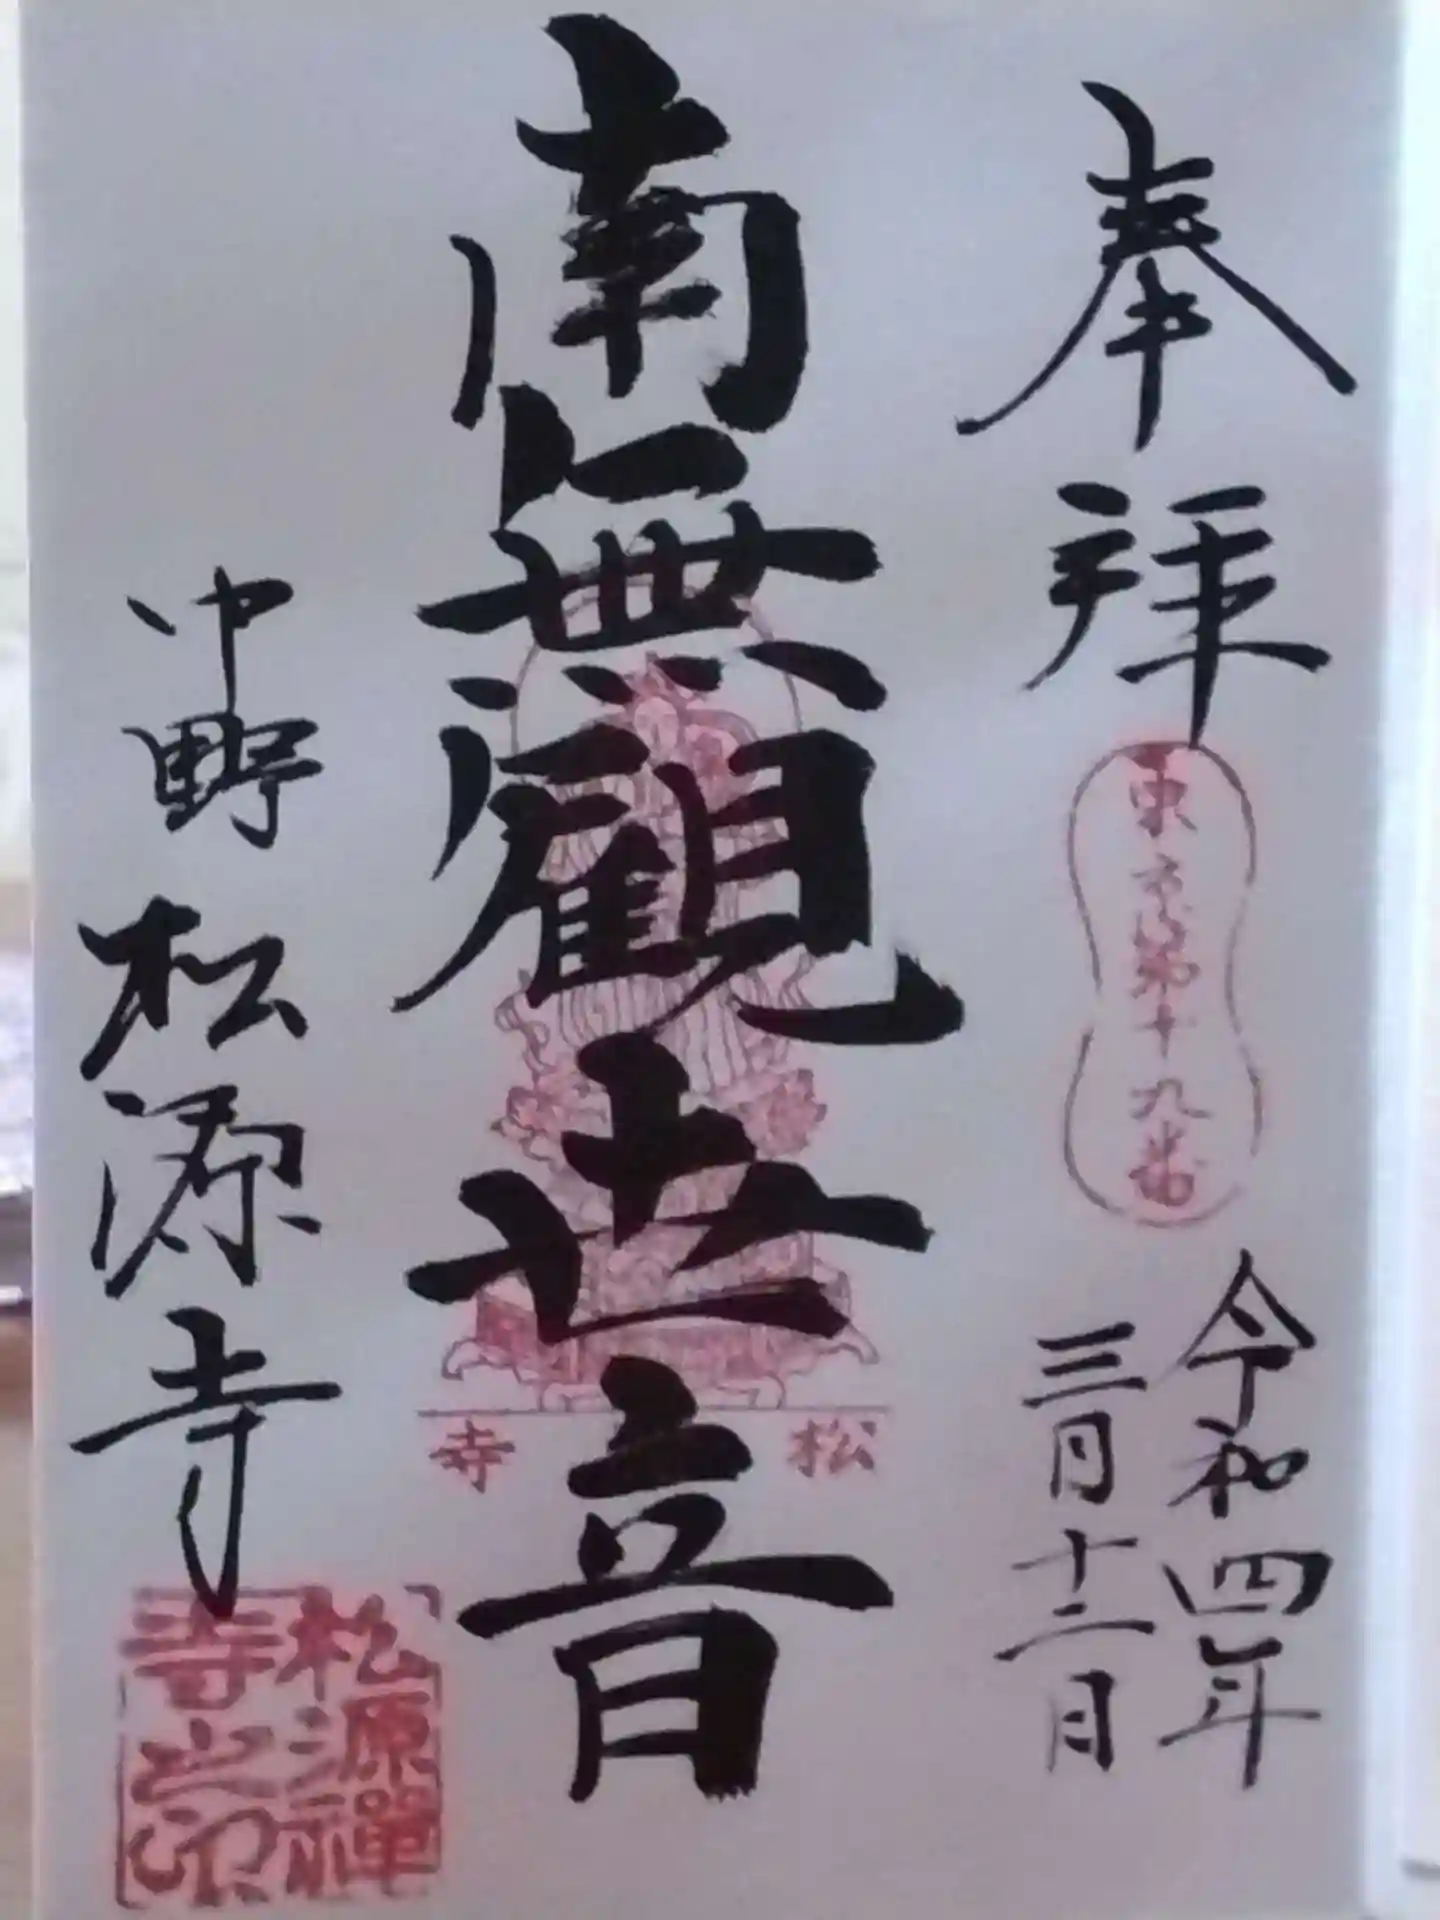 奉拝
東京第十九番
令和四年
三月十二日
南無観世音
松
寺
中野 松源寺
松源禅
寺之印